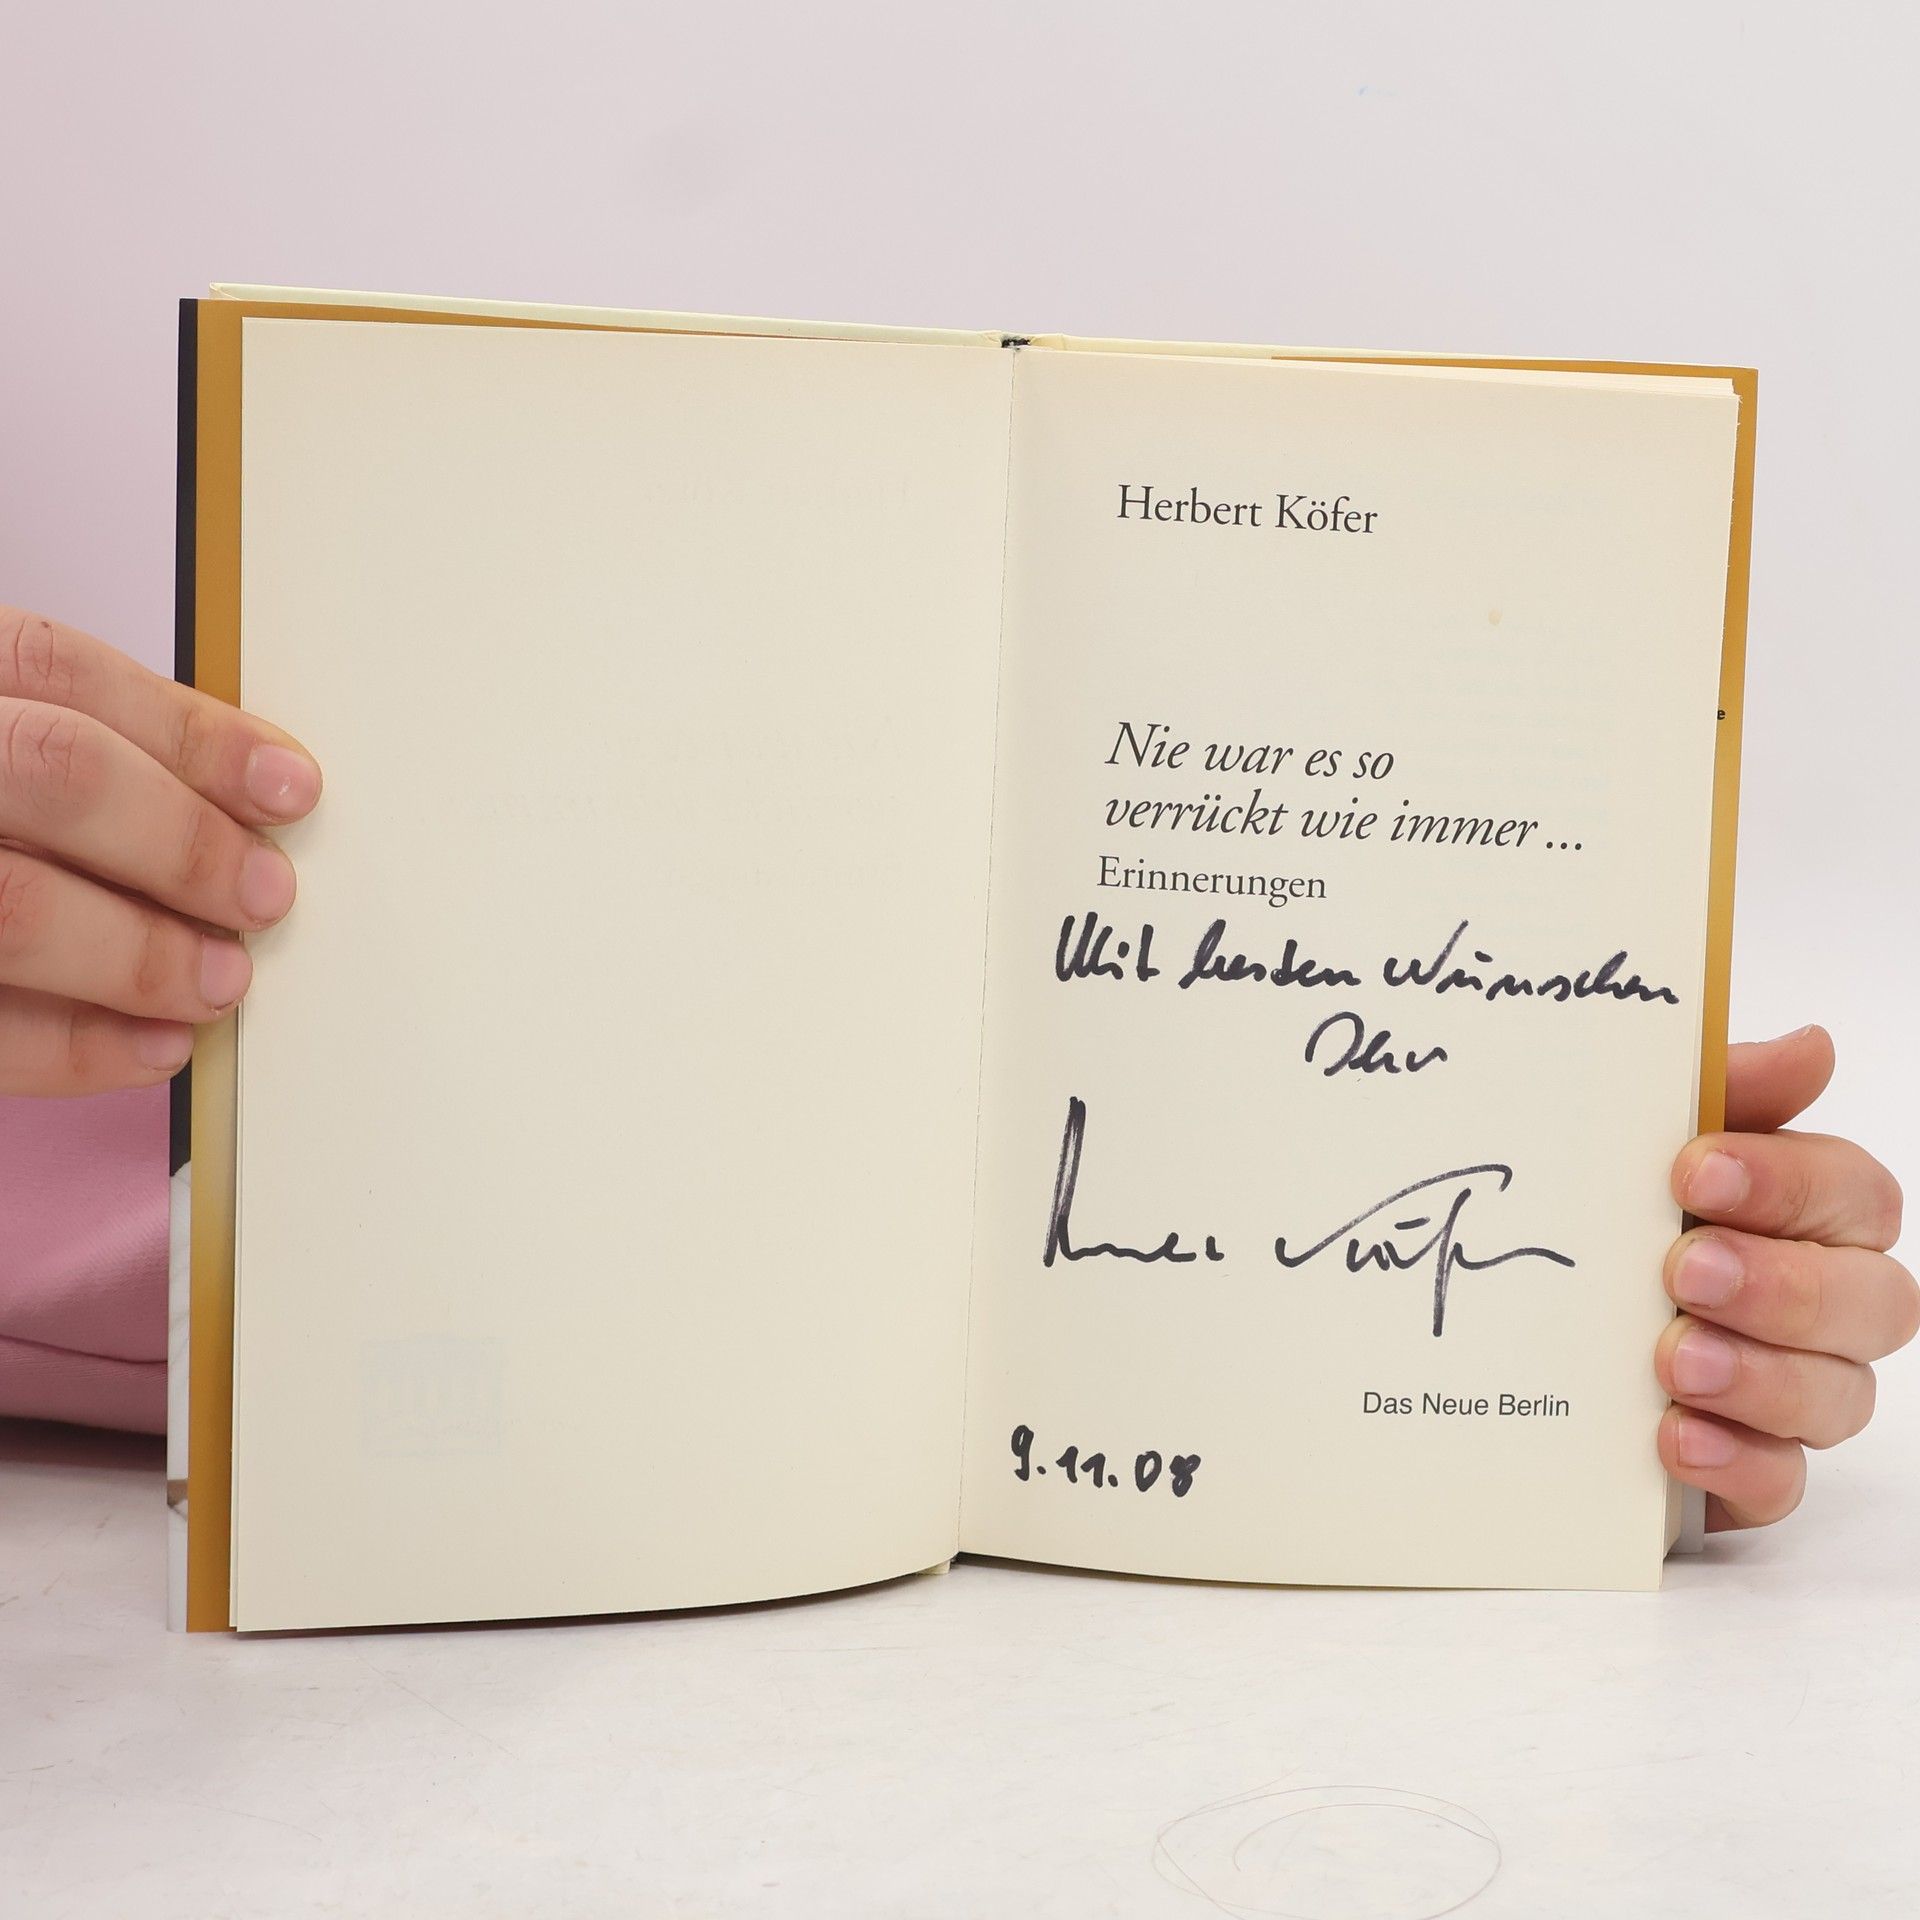 Herbert Köfer
Nie war es so
verrückt wie immer ...
Erinnerungen
Mit besten Wünschen
Ihr
Herbert Köfer
Das Neue Berlin
9.11.08
e